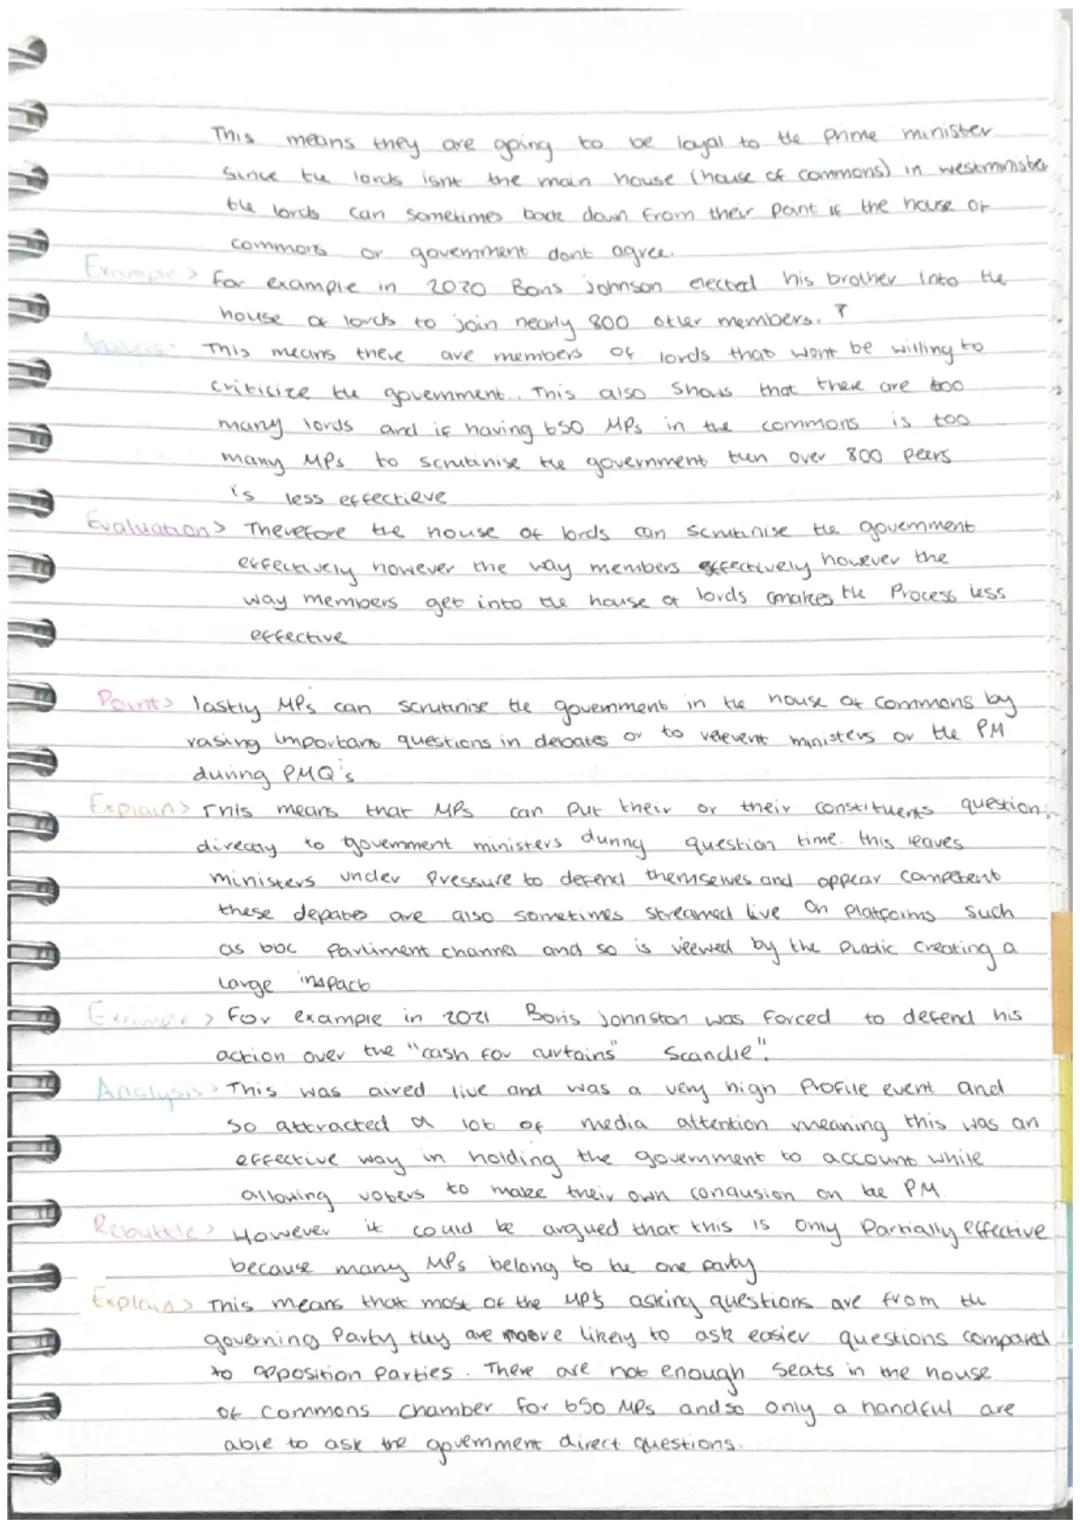 This means they are going to be loyal to the prime minister
Since the lords isnt the main house (house of commons) in westminister
the lords can sometimes back down from their point if the house of
commons or government dont agree.
Example > for example in 2020 Boris Johnson elected his brother into the
house of lords to join nearly 800 other members. ?
Analysis > This means there are members of lords that wont be willing to
criticize the government.. This also shows that there are too
many lords and if having 650 MPs in the commons is too
many MPs to scrutinise the government then over 800 peers
is less effectieve
Evaluation > Therefore the house of lords can scrutinise the government
effectively however the way members effectively however the
way members get into the house of lords makes the Process less
effective
Point > lastly MPs can scrutinise the government in the house of commons by
rasing important questions in debates or to relevent ministers or the PM
during PMQ's
Explain > This means that MPs can put their or their constituents question
directly to government ministers during question time. this leaves
ministers under Pressure to defend themselves and appear competent
these debates are also sometimes streamed live on platforms such
as bbc Parliment channel and so is viewed by the public creating a
large impact
Example > For example in 2021 Boris Johnston was forced to defend his
action over the "cash for curtains" Scandle".
Analysis > This was aired live and was a very high Profile event and
so attracted a lot of media attention meaning this was an
effective way in holding the government to account while
allowing voters to make their own conclusion on the PM.
Rebuttle > However it could be argued that this is only Partially effective
because many MPs belong to the one party
Explain > This means that most of the MP's asking questions are from the
governing Party they are moore likely to ask easier questions compared
to opposition Parties. There are not enough seats in the house
of commons chamber for 650 MPs and so only a handful are
able to ask the government direct questions.